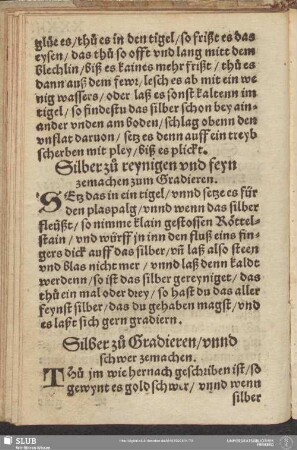 glüe es/thů es in den tigel/so frißt es das
eysen/das thů so offt vnd lang mitt dem
blechlin/biß es kaines mehr frißt/thů es
dann auß dem fewr/lesch es ab mit ein we
nig wassers/oder laß es sonst kaltenn im
tigel/so findestu das silber schon bey ain-
ander vnden am boden/schlag obenn den
vnflat daruon/setz es denn auff ein treyb
scherben mit pley/biß es plickt.
Silber zů reynigen vnd feyn
zemachen zum Gradieren.
SEtz das in ein tigel/vnnd setze es für
den plaspalg/vnnd wenn das silber
fleüßt/so nimme klain gestossen Röttel-
stain/vnd würff jn inn den fluß eins fin-
gers dick auff das silber/vñ laß also steen
vnd blas nicht mer/vnnd laß denn kaldt
werdenn/so ist das silber gereyniget/das
thů ein mal oder drey/so hast du das aller
feynst silber/das du gehaben magst/vnd
es laßt sich gern gradiern.
Silber zů Gradieren/vnnd
schwer zemachen.
THů jm wie hernach geschriben ist/so
gewynt es goldschwer/vnnd wenn
silber
SLUB
Wir führen Wissen.
UNIVERSITÄTSBIBLIOTHEK
FREIBERG